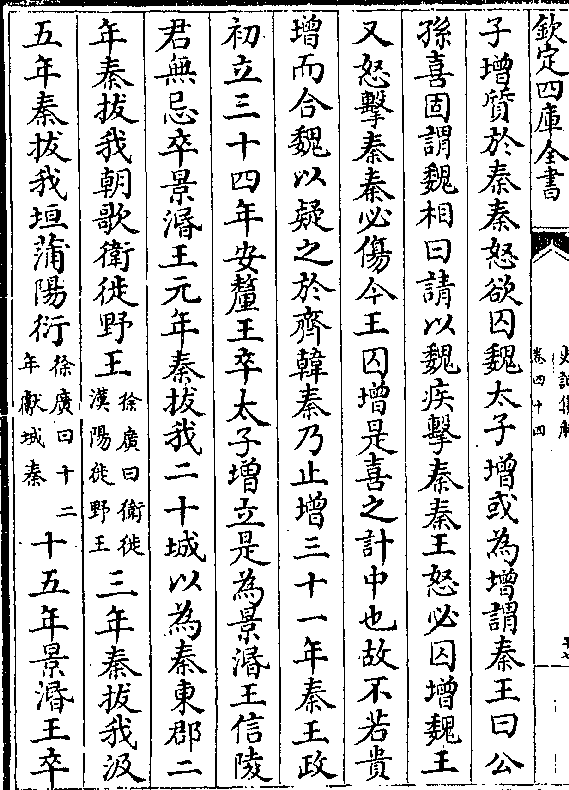 欽定四庫全書
史記集解
卷四十四
子增質於秦秦怒欲囚魏太子增或為增謂秦王曰公
孫喜固謂魏相曰請以魏疾擊秦秦王怒必囚增魏王
又怒擊秦秦必傷今王囚增是喜之計中也故不若貴
增而合魏以疑之於齊韓秦乃止增三十一年秦王政
初立三十四年安釐王卒太子增立是為景湣王信陵
君無忌卒景湣王元年秦拔我二十城以為秦東郡二
年秦拔我朝歌衛徙野王徐廣曰衛徙漢陽徙野王三年秦拔我汲
五年秦拔我垣蒲陽衍徐廣曰十二年獻城秦十五年景湣王卒